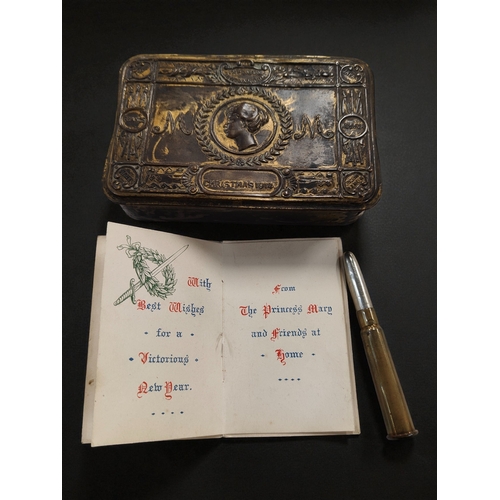 M M
CHRISTMAS 1914
With
Best Wishes
· for a ·
· Victorious ·
New Year.
From
The Princess Mary
and Friends at
· Home ·